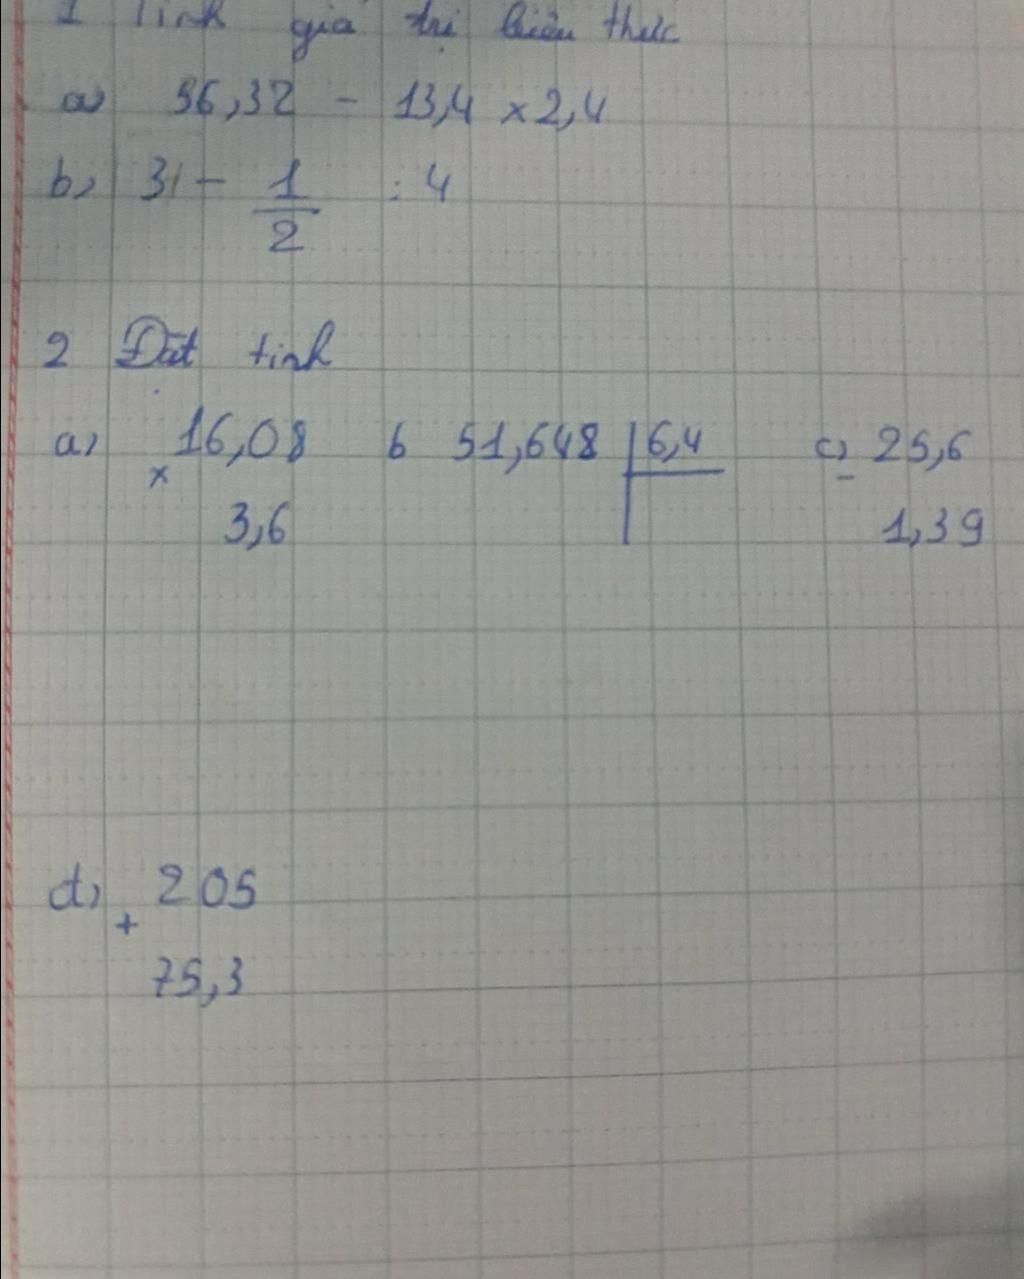 1 Tính giá trị biểu thức
a) 56,32 - 13,4 x 2,4
b) 3 - 1/2 : 4
2 Đặt tính
a) 16,08 b 51,648 6,4 c) 25,6
x -
3,6 1,39
d) 205
+
75,3